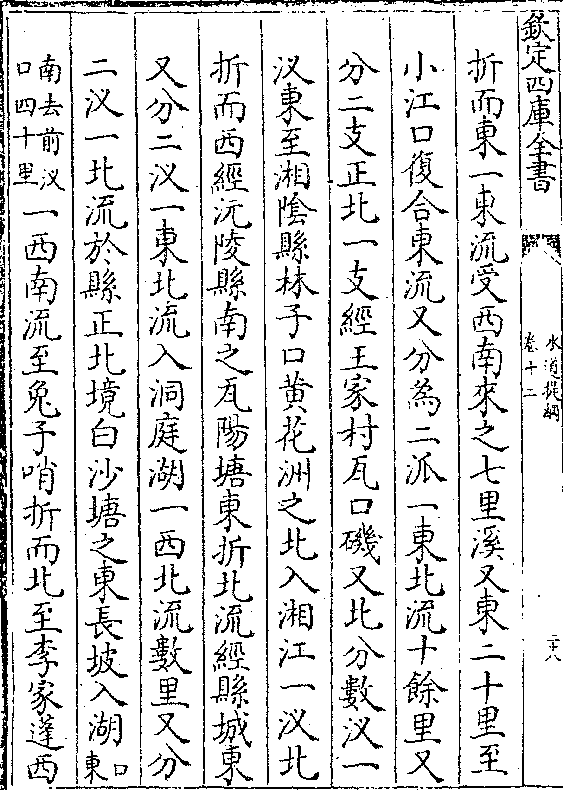 欽定四庫全書
水道提綱
卷十二
二十八
折而東一東流受西南來之七里溪又東二十里至
小江口復合東流又分為二派一東北流十餘里又
分二支正北一支經王家村瓦口磯又北分數汊一
汊東至湘隂縣林子口黄花洲之北入湘江一汊北
折而西經沅陵縣南之瓦陽塘東折北流經縣城東
又分二汊一東北流入洞庭湖一西北流數里又分
二汊一北流於縣正北境白沙塘之東長坡入湖口東
南去前汊口四十里一西南流至兔子哨折而北至李家蓬西